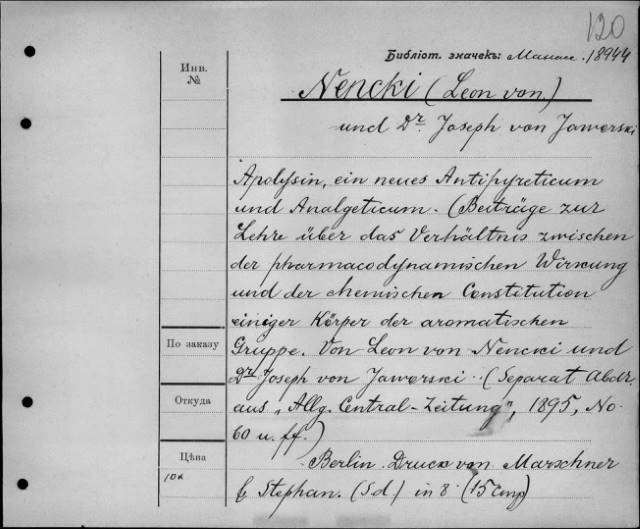 120
Библіот. значекъ: 18944
Инв.
№
Nencki (Leon von)
und Dr. Joseph von Jaworski
Apolysin, ein neues Antipyreticum
und Analgeticum. (Beiträge zur
Lehre über das Verhältnis zwischen
der pharmacodynamischen Wirkung
und der chemischen Constitution
einiger Körper der aromatischen
По заказу
Gruppe. Von Leon von Nencki und
Dr Joseph von Jaworski. (Separat Abdr.
Откуда
aus „Allg. Central-Zeitung", 1895, No.
60 u. ff.)
Цѣна
Berlin. Druck von Marschner
& Stephan. (S.d.) in 8. (15 стр)